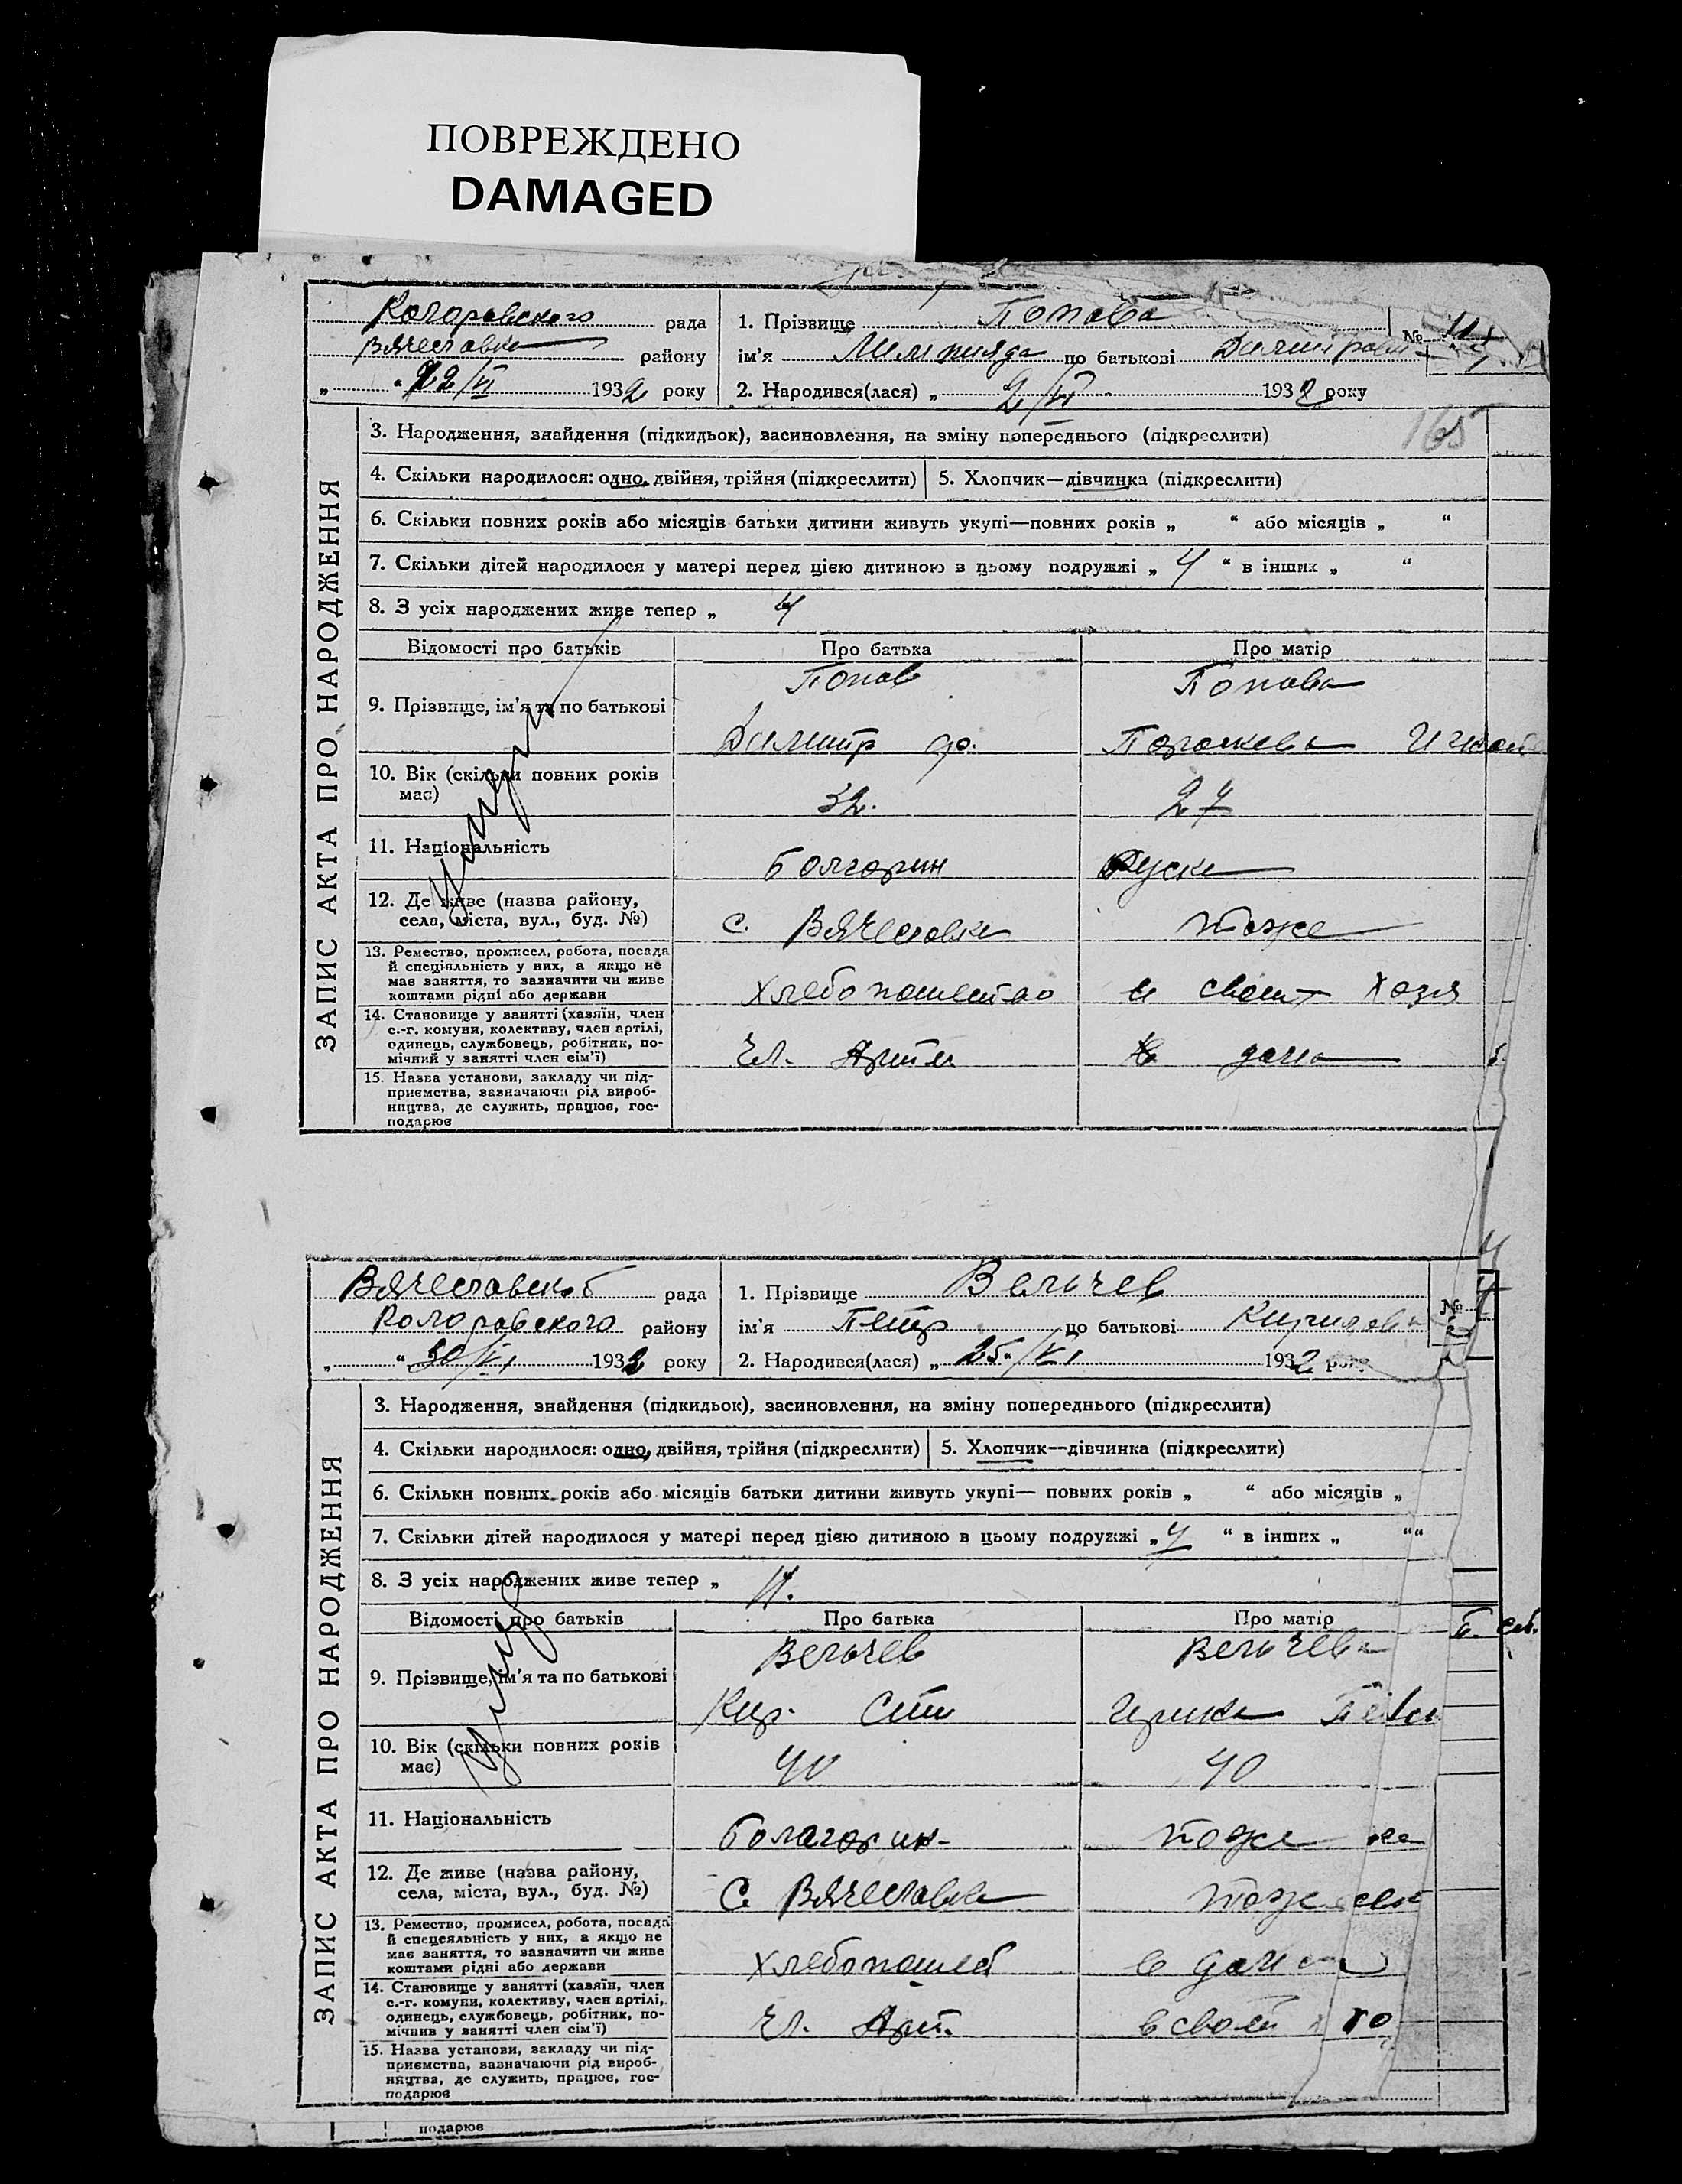 ПОВРЕЖДЕНО
DAMAGED
Коларовского рада
района
"22/VI 1932 року
1. Прізвище Попова
№
ім'я по батькові
2. Народився(лася) „ 2/VI 1932 року
165
ЗАПИС АКТА ПРО НАРОДЖЕННЯ
3. Народження, знайдення (підкидьок), засиновлення, на зміну попереднього (підкреслити)
4. Скільки народилося: одно, двійня, трійня (підкреслити) 5. Хлопчик—дівчинка (підкреслити)
6. Скільки повних років або місяців батьки дитини живуть укупі—повних років „ “ або місяців „ “
7. Скільки дітей народилося у матері перед цією дитиною в цьому подружжі „ 4 “ в інших „ “
8. З усіх народжених живе тепер „ 4
Відомості про батьків Про батька Про матір
9. Прізвище, ім'я та по батькові Попов Попова
Димитр
10. Вік (скільки повних років має) 32. 27
11. Національність Болгарин Руска
12. Де живе (назва району, села, міста, вул., буд. №) с. Вячеславка тоже
13. Ремество, промисел, робота, посада
й спеціяльність у них, а якщо не
має заняття, то зазначити чи живе
коштами рідні або держави
в своем хозя
14. Становище у занятті (хазяїн, член
с.-г. комуни, колективу, член артілі,
одинець, службовець, робітник, по-
мічний у занятті член сім'ї)
Чл. Артели
15. Назва установи, закладу чи під-
приємства, зазначаючи рід вироб-
ництва, де служить, працює, гос-
подарює
Вячеславской рада
Коларовского району
„ “ 30/VI 1932 року
1. Прізвище Вельчев
№
ім'я Петр по батькові Кирилов
2. Народився(лася) „ 25/VI 1932 року
ЗАПИС АКТА ПРО НАРОДЖЕННЯ
3. Народження, знайдення (підкидьок), засиновлення, на зміну попереднього (підкреслити)
4. Скільки народилося: одно, двійня, трійня (підкреслити) 5. Хлопчик—дівчинка (підкреслити)
6. Скільки повних років або місяців батьки дитини живуть укупі— повних років „ “ або місяців „
7. Скільки дітей народилося у матері перед цією дитиною в цьому подружжі „ 4 “ в інших „ ““
8. З усіх народжених живе тепер „
Відомості про батьків Про батька Про матір
9. Прізвище, ім'я та по батькові Вельчев Вельчева
Кир.
10. Вік (скільки повних років має) 40 40
11. Національність тоже
12. Де живе (назва району, села, міста, вул., буд. №) С. Вячеславка тоже
13. Ремество, промисел, робота, посада
й спецеяльність у них, а якщо не
має заняття, то зазначити чи живе
коштами рідні або держави
14. Становище у занятті (хазяїн, член
с.-г. комуни, колективу, член артілі,
одинець, службовець, робітник, по-
мічнив у занятті член сім'ї)
Чл. Арт. в своем
15. Назва установи, закладу чи під-
приємства, зазначаючи рід вироб-
ництва, де служить, працює, гос-
подарює
подарює